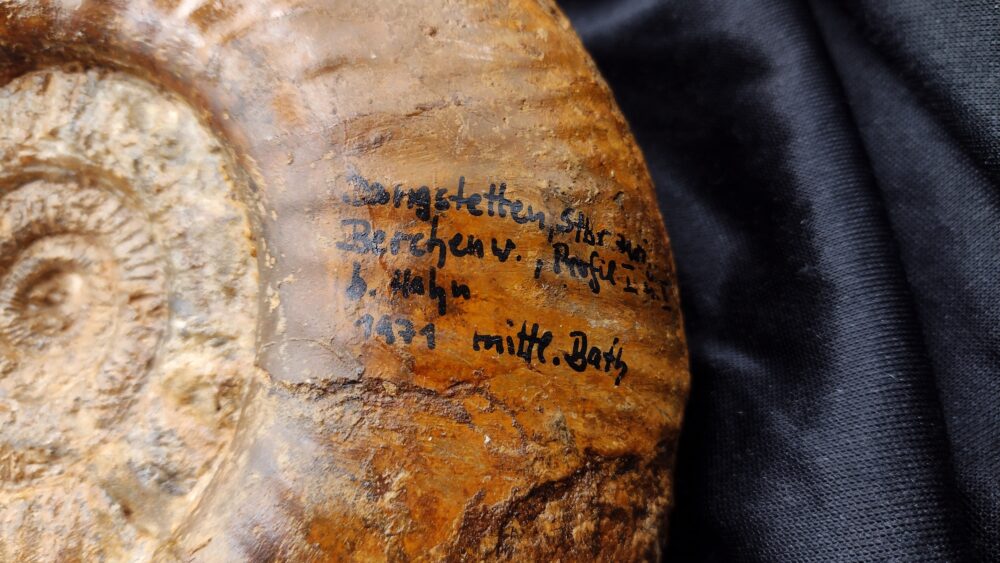 Dorngstetten, Stbr zwi.
Berchenw., Profil I u. I
b. Hahn
1971 mittl. Bath